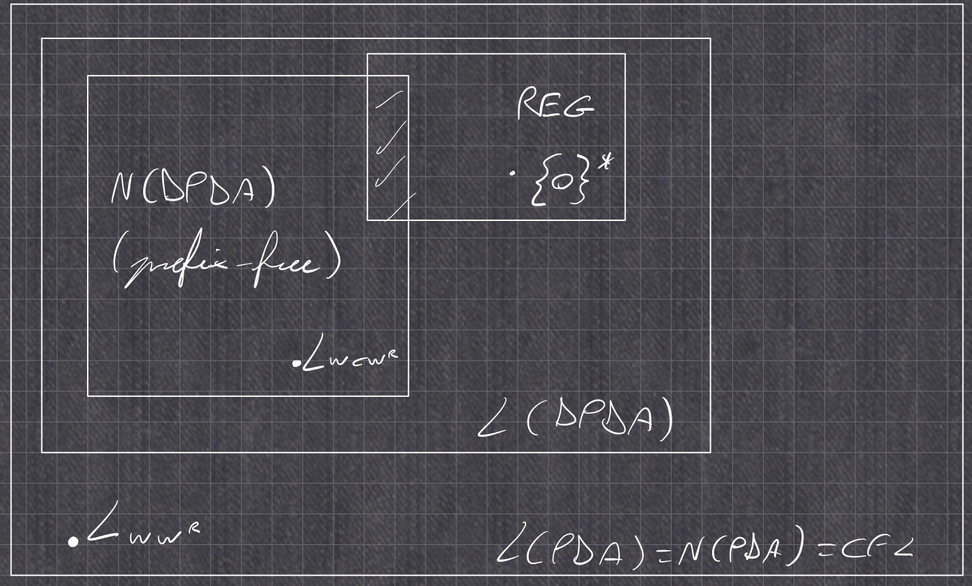 REG
. {0}*
N(DPDA)
(prefix-free)
. L_{wcw^R}
L(DPDA)
. L_{ww^R}
L(PDA)=N(PDA)=CFL